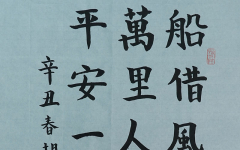 船借風
萬里人
平安一
辛丑春